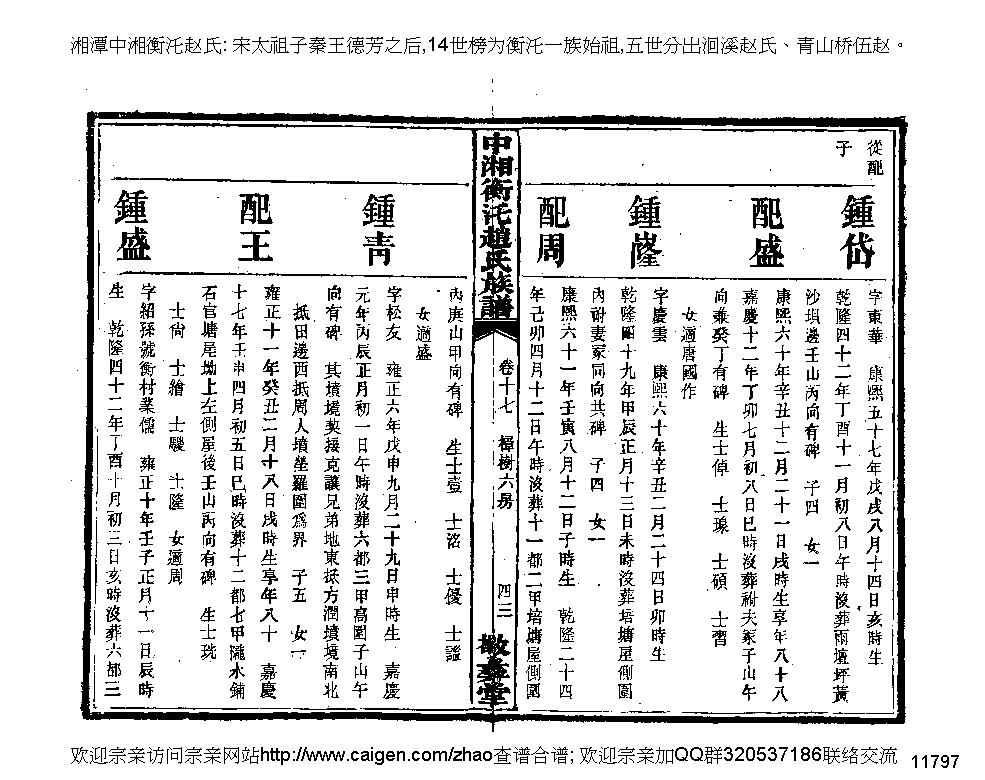 湘潭中湘衡沱赵氏: 宋太祖子秦王德芳之后,14世榜为衡沱一族始祖,五世分出洄溪赵氏、青山桥伍赵。
從配
子
鍾岱
字東華 康熙五十七年戊戌八月十四日亥時生
乾隆四十二年丁酉十一月初八日午時沒葬兩壇坪黃
沙垻邊壬山丙向有碑 子四 女一
配盛
康熙六十年辛丑十二月二十一日戌時生享年八十八
嘉慶十二年丁卯七月初八日巳時沒葬祔夫冢子山午
向兼癸丁有碑 生士倬 士瑔 士碩 士習
女適唐國作
鍾嶐
字慶雲 康熙六十年辛丑二月二十四日卯時生
乾隆四十九年甲辰正月十三日未時沒葬培塘屋側園
內祔妻冢同向共碑 子四 女一
配周
康熙六十一年壬寅八月十二日子時生 乾隆二十四
年己卯四月十二日午時沒葬十一都二甲培塘屋側園
中湘衡沱趙氏族譜 卷十七 樟樹六房 四三 敬彝堂
內庚山甲向有碑 生士壹 士洺 士優 士謐
女適盛
鍾靑
字松友 雍正六年戊申九月二十九日申時生 嘉慶
元年丙辰正月初一日午時沒葬六都三甲高園子山午
向有碑 其墳境契接克讓兄弟地東抵方潤墳境南北
抵田邊西抵周人墳塋羅圍爲界 子五 女一
配王
雍正十一年癸丑二月十八日戌時生享年八十 嘉慶
十七年壬申四月初五日巳時沒葬十二都七甲隴水鋪
石官塘尾坳上左側屋後壬山丙向有碑 生士珖
士尙 士繪 士駿 士隆 女適周
鍾盛
字紹孫號衡村業儒 雍正十年壬子正月十一日辰時
生 乾隆四十二年丁酉十月初三日亥時沒葬六都三
欢迎宗亲访问宗亲网站http://www.caigen.com/zhao查谱合谱; 欢迎宗亲加QQ群320537186联络交流
11797